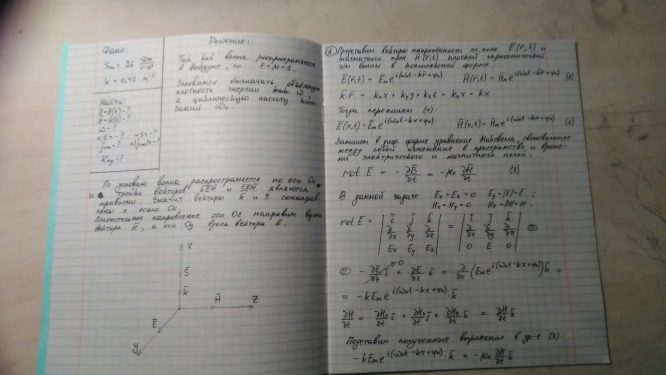 Дано:
Sm = 26
k = 0,41 м⁻¹
Найти:
E = E(t) - ?
H = H(t) - ?
w - ?
<S> - ?
jm - ?
Kед - ?
Решение:
Так как волна распространяется
в воздухе, то ε = μ = 1.
Условимся обозначать объёмную
плотность энергии как w
а циклическую частоту
ω₀.
По условию волна распространяется по оси Ox
и тройки векторов и являются
правыми. Значит векторы k и S сонаправ-
лены с осью Ox
Положительное направление оси Oz направим вдоль
вектора H, а оси Oy вдоль вектора E.
X
S
k
H
Z
E
y
① Представим векторы напряженности эл. поля E(r,t) и
магнитного поля H(r,t) плоской гармонической
эм волны в комплексной форме
E(r,t) = Em e^i(ω₀t - kr + φ₀) H(r,t) = Hm e^i(ω₀t - kr + φ₀)
k·r = kₓx + k_y y + k_z z = kₓx = kx
Тогда перепишем
E(x,t) = Em e^i(ω₀t - kx + φ₀) H(x,t) = Hm e^i(ω₀t - kx + φ₀)
Запишем в диф. форме уравнение Максвелла, связывающее
между собой изменение в пространстве и време-
ни электрического и магнитного полей.
rot E = - ∂B/∂t = - μ₀ ∂H/∂t
В данной задаче Ex = Ez = 0 Ey = |E| = E
Hx = Hy = 0 Hz = |H| = H.
rot E = | i j k | = | i j k |
| ∂/∂x ∂/∂y ∂/∂z | | ∂/∂x ∂/∂y ∂/∂z | ⊜
| Ex Ey Ez | | 0 E 0 |
⊜ - ∂E/∂z i + ∂E/∂x k = ∂/∂x (Em e^i(ω₀t - kx + φ₀)) k =
= - kEm e^i(ω₀t - kx + φ₀) · k
∂H/∂t = ∂Hx/∂t i + ∂Hy/∂t j + ∂Hz/∂t k = ∂H/∂t k
Подставим полученные выражения в ур-е
- kEm e^i(ω₀t - kx + φ₀) k = - μ₀ ∂H/∂t k